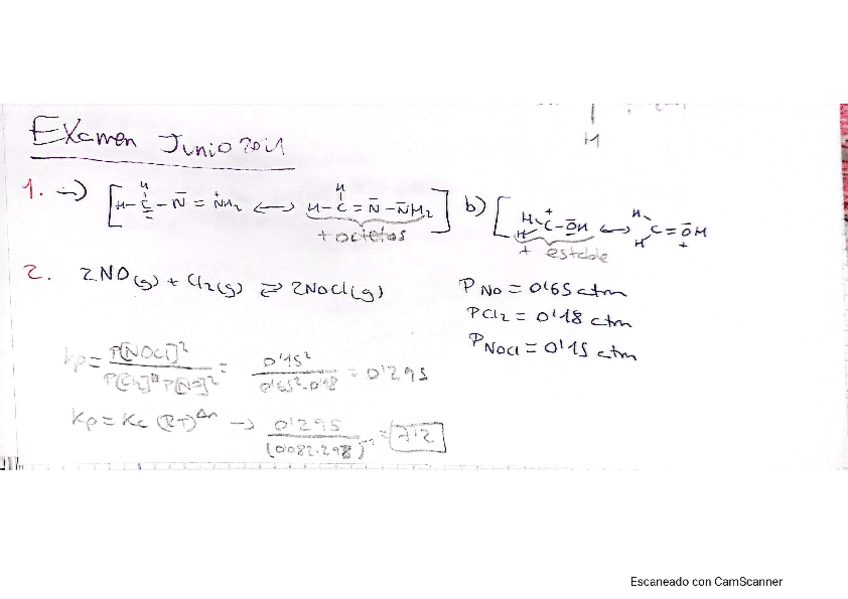 H
Examen Junio 2021
1. a) [H-C(H)-N̄=N⁺H₂ ⟷ H-C(H)=N̄-N̄H₂] b) [H H C⁺-ŌH ⟷ H H C=ŌH +
+ octetos + estable
2. 2NO(g) + Cl₂(g) ⇌ 2NOCl(g) P NO = 0'65 atm
P Cl₂ = 0'18 atm
P NOCl = 0'15 atm
Kp = P[NOCl]² / P[Cl₂] P[NO]² = 0'15² / 0'65²·0'18 = 0'295
Kp = Kc (RT)^Δn → 0'295 / (0'082·298)⁻¹ = 7'2
Escaneado con CamScanner